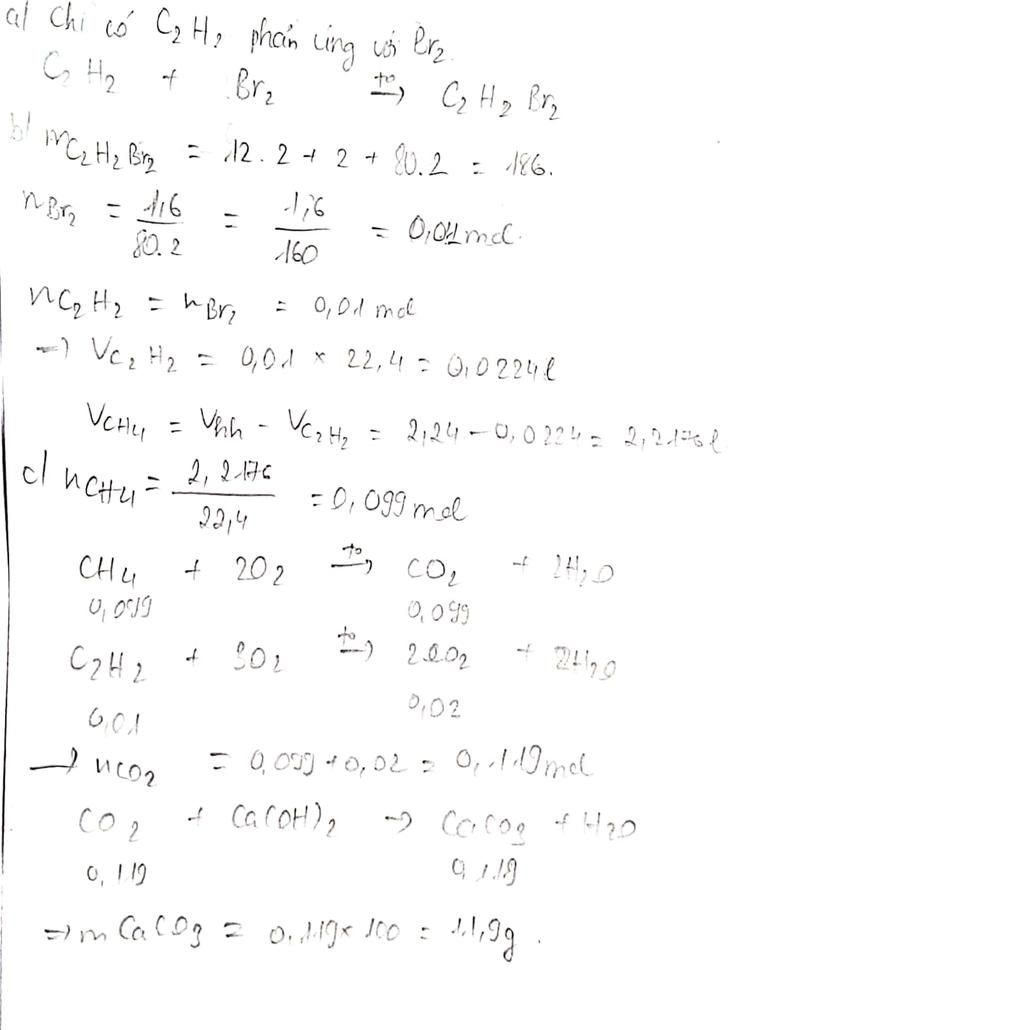 a) Chỉ có C₂H₂ phản ứng với Br₂.
C₂H₂ + Br₂ →(t°) C₂H₂Br₂
b) mC₂H₂Br₂ = 12.2 + 2 + 80.2 = 186.
nBr₂ = 1,6/80.2 = 1,6/160 = 0,01 mol.
nC₂H₂ = nBr₂ = 0,01 mol
→ VC₂H₂ = 0,01 × 22,4 = 0,0224 l
VCH₄ = Vhh - VC₂H₂ = 2,24 - 0,0224 = 2,2176 l
c) nCH₄ = 2,2176/22,4 = 0,099 mol
CH₄ + 2O₂ →(t°) CO₂ + 2H₂O
0,099 0,099
C₂H₂ + 3O₂ →(t°) 2CO₂ + 2H₂O
0,01 0,02
→ nCO₂ = 0,099 + 0,02 = 0,119 mol
CO₂ + Ca(OH)₂ → CaCO₃ + H₂O
0,119 0,119
⇒ m CaCO₃ = 0,119 × 100 = 11,9g.